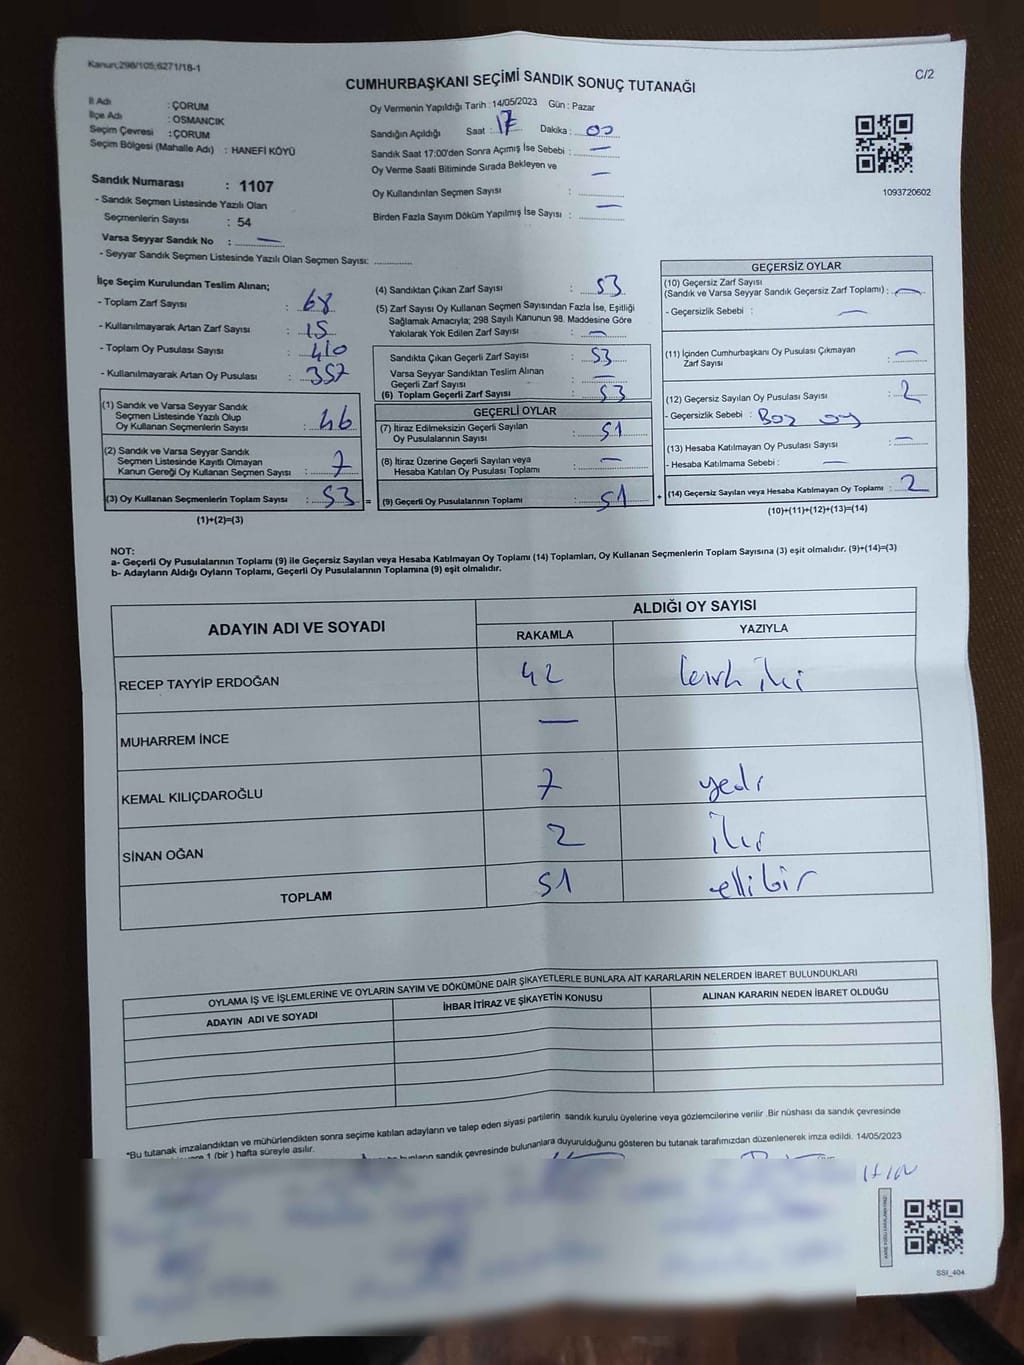 Kanun;298/105;6271/18-1
C/2
CUMHURBAŞKANI SEÇİMİ SANDIK SONUÇ TUTANAĞI
İl Adı : ÇORUM
İlçe Adı : OSMANCIK
Seçim Çevresi : ÇORUM
Seçim Bölgesi (Mahalle Adı) : HANEFİ KÖYÜ
Sandık Numarası : 1107
- Sandık Seçmen Listesinde Yazılı Olan
Seçmenlerin Sayısı : 54
Varsa Seyyar Sandık No : —
- Seyyar Sandık Seçmen Listesinde Yazılı Olan Seçmen Sayısı: ............
Oy Vermenin Yapıldığı Tarih : 14/05/2023 Gün : Pazar
Sandığın Açıldığı Saat : 17 Dakika : 00
Sandık Saat 17:00'den Sonra Açımış İse Sebebi : —
Oy Verme Saati Bitiminde Sırada Bekleyen ve —
Oy Kullandırılan Seçmen Sayısı : ............
Birden Fazla Sayım Döküm Yapılmış İse Sayısı : —
1093720602
İlçe Seçim Kurulundan Teslim Alınan;
- Toplam Zarf Sayısı : 68
- Kullanılmayarak Artan Zarf Sayısı : 15
- Toplam Oy Pusulası Sayısı : 410
- Kullanılmayarak Artan Oy Pusulası : 357
(1) Sandık ve Varsa Seyyar Sandık
Seçmen Listesinde Yazılı Olup
Oy Kullanan Seçmenlerin Sayısı : 46
(2) Sandık ve Varsa Seyyar Sandık
Seçmen Listesinde Kayıtlı Olmayan
Kanun Gereği Oy Kullanan Seçmen Sayısı : 7
(3) Oy Kullanan Seçmenlerin Toplam Sayısı : 53 =
(1)+(2)=(3)
(4) Sandıktan Çıkan Zarf Sayısı : 53
(5) Zarf Sayısı Oy Kullanan Seçmen Sayısından Fazla İse, Eşitliği
Sağlamak Amacıyla; 298 Sayılı Kanunun 98. Maddesine Göre
Yakılarak Yok Edilen Zarf Sayısı : —
Sandıkta Çıkan Geçerli Zarf Sayısı : 53
Varsa Seyyar Sandıktan Teslim Alınan
Geçerli Zarf Sayısı : —
(6) Toplam Geçerli Zarf Sayısı : 53
GEÇERLİ OYLAR
(7) İtiraz Edilmeksizin Geçerli Sayılan
Oy Pusulalarının Sayısı : 51
(8) İtiraz Üzerine Geçerli Sayılan veya
Hesaba Katılan Oy Pusulası Toplamı : —
(9) Geçerli Oy Pusulalarının Toplamı : 51 +
GEÇERSİZ OYLAR
(10) Geçersiz Zarf Sayısı
(Sandık ve Varsa Seyyar Sandık Geçersiz Zarf Toplamı) : —
- Geçersizlik Sebebi : —
(11) İçinden Cumhurbaşkanı Oy Pusulası Çıkmayan
Zarf Sayısı : —
(12) Geçersiz Sayılan Oy Pusulası Sayısı : 2
- Geçersizlik Sebebi : Boz oy
(13) Hesaba Katılmayan Oy Pusulası Sayısı : —
- Hesaba Katılmama Sebebi : —
(14) Geçersiz Sayılan veya Hesaba Katılmayan Oy Toplamı : 2
(10)+(11)+(12)+(13)=(14)
NOT:
a- Geçerli Oy Pusulalarının Toplamı (9) ile Geçersiz Sayılan veya Hesaba Katılmayan Oy Toplamı (14) Toplamları, Oy Kullanan Seçmenlerin Toplam Sayısına (3) eşit olmalıdır. (9)+(14)=(3)
b- Adayların Aldığı Oyların Toplamı, Geçerli Oy Pusulalarının Toplamına (9) eşit olmalıdır.
ADAYIN ADI VE SOYADI
ALDIĞI OY SAYISI
RAKAMLA YAZIYLA
RECEP TAYYİP ERDOĞAN 42 kırk iki
MUHARREM İNCE —
KEMAL KILIÇDAROĞLU 7 yedi
SİNAN OĞAN 2 iki
TOPLAM 51 ellibir
OYLAMA İŞ VE İŞLEMLERİNE VE OYLARIN SAYIM VE DÖKÜMÜNE DAİR ŞİKAYETLERLE BUNLARA AİT KARARLARIN NELERDEN İBARET BULUNDUKLARI
ADAYIN ADI VE SOYADI İHBAR İTİRAZ VE ŞİKAYETİN KONUSU ALINAN KARARIN NEDEN İBARET OLDUĞU
*Bu tutanak imzalandıktan ve mühürlendikten sonra seçime katılan adayların ve talep eden siyasi partilerin sandık kurulu üyelerine veya gözlemcilerine verilir .Bir nüshası da sandık çevresinde
1 (bir ) hafta süreyle asılır.
sandık çevresinde bulunanlara duyurulduğunu gösteren bu tutanak tarafımızdan düzenlenerek imza edildi. 14/05/2023
SSI_404